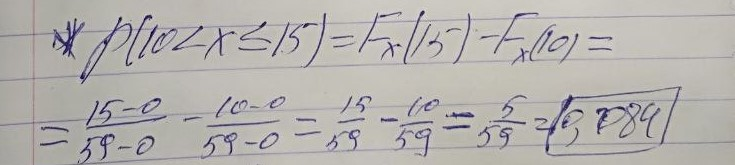 * P(10<x≤15)=Fx(15)-Fx(10)=
= 15-0/59-0 - 10-0/59-0 = 15/59 - 10/59 = 5/59 = 0,084